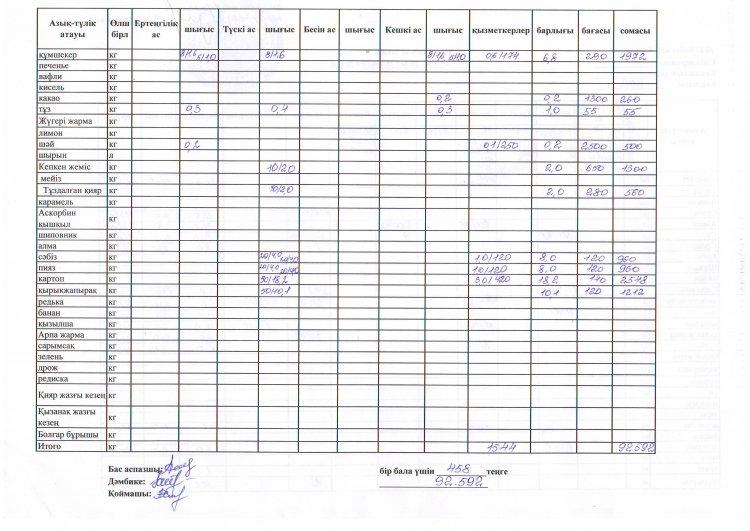 Азық-түлік атауы Өлш бірл Ертеңгілік ас шығыс Түскі ас шығыс Бесін ас шығыс Кешкі ас шығыс қызметкерлер барлығы бағасы сомасы
құмшекер кг 8/1,6 5/1,0 8/1,6 8/1,6 5/1,0 0,6/174 6,8 290 1972
печенье кг
вафли кг
кисель кг
какао кг 0,2 0,2 1300 260
тұз кг 0,3 0,4 0,3 1,0 55 55
Жүгері жарма кг
лимон кг
шәй кг 0,2 0,1/250 0,2 2500 500
шырын л
Кепкен жеміс кг 10/2,0 2,0 650 1300
мейіз кг
Тұздалған қияр кг 10/2,0 2,0 280 560
карамель кг
Аскорбин қышқыл кг
шиповник кг
алма кг
сәбіз кг 20/4,0 20/4,0 1,0/120 8,0 120 960
пияз кг 20/4,0 20/4,0 1,0/120 8,0 120 960
картоп кг 90/18,2 3,0/420 18,2 140 2548
қырыққапырақ кг 50/10,1 10,1 120 1212
редька кг
банан кг
қызылша кг
Арпа жарма кг
сарымсақ кг
зелень кг
дрож кг
редиска кг
Қияр жазғы кезең кг
Қызанақ жазғы кезең кг
Болгар бұрышы кг
Итого кг 1544 92.592
Бас аспазшы: бір бала үшін 458 теңге
Дәмбике: 92.592
Қоймашы: